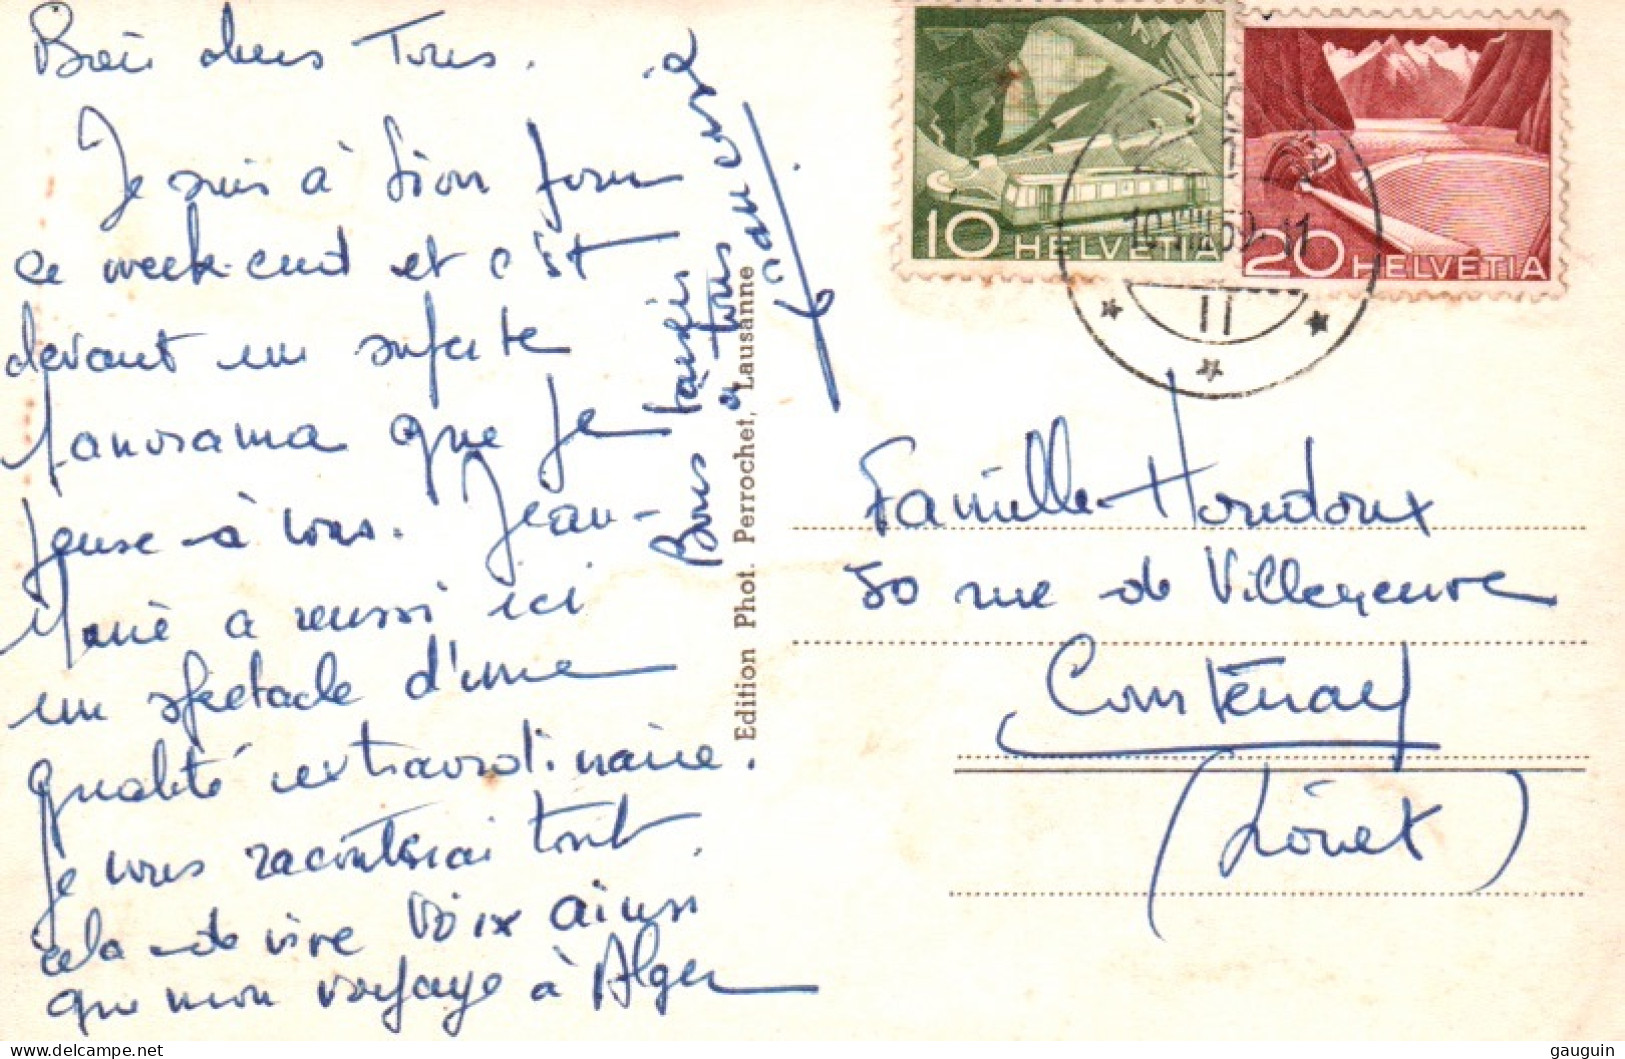 Bien chers Tous.
Je suis à Sion pour
ce week-end et c'est
devant un superbe
panorama que je
pense à vous. Jean-
Marie a réussi ici
un spectacle d'une
qualité extraordinaire.
Je vous raconterai tout
cela de vive voix ainsi
que mon voyage à Alger
Bons baisers
à tous
Edition Phot. Perrochet, Lausanne
10 HELVETIA
20 HELVETIA
10.VIII.59.11
11
Famille Houdoux
50 rue de Villeneuve
Courtenay
(Loiret)
delcampe.net
gauguin